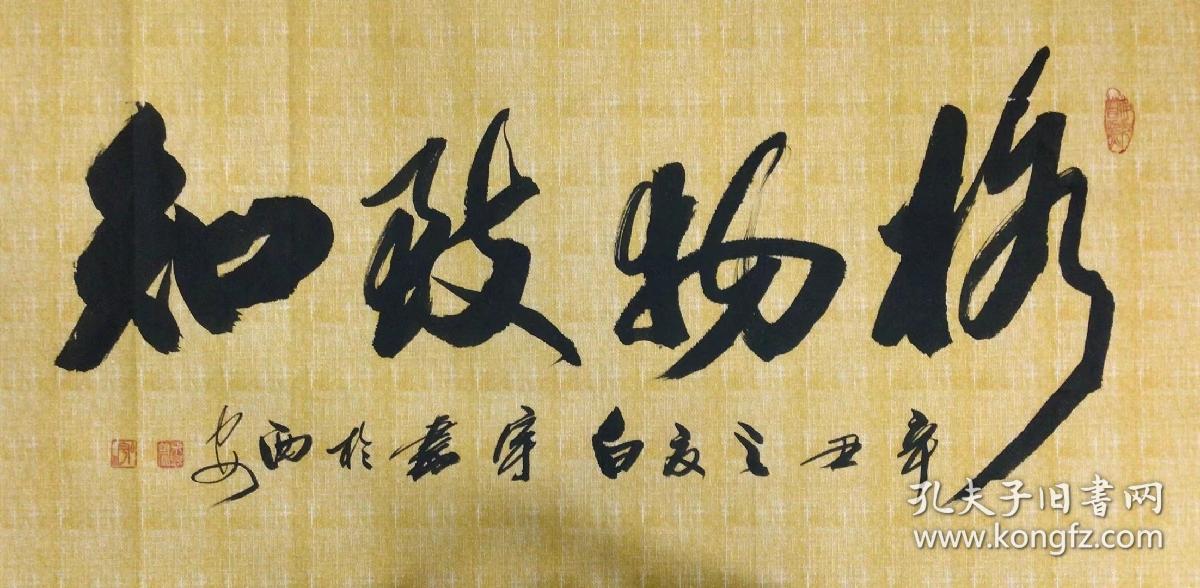 格物致知
辛丑之夏白宇书於西安
孔夫子旧书网
www.kongfz.com